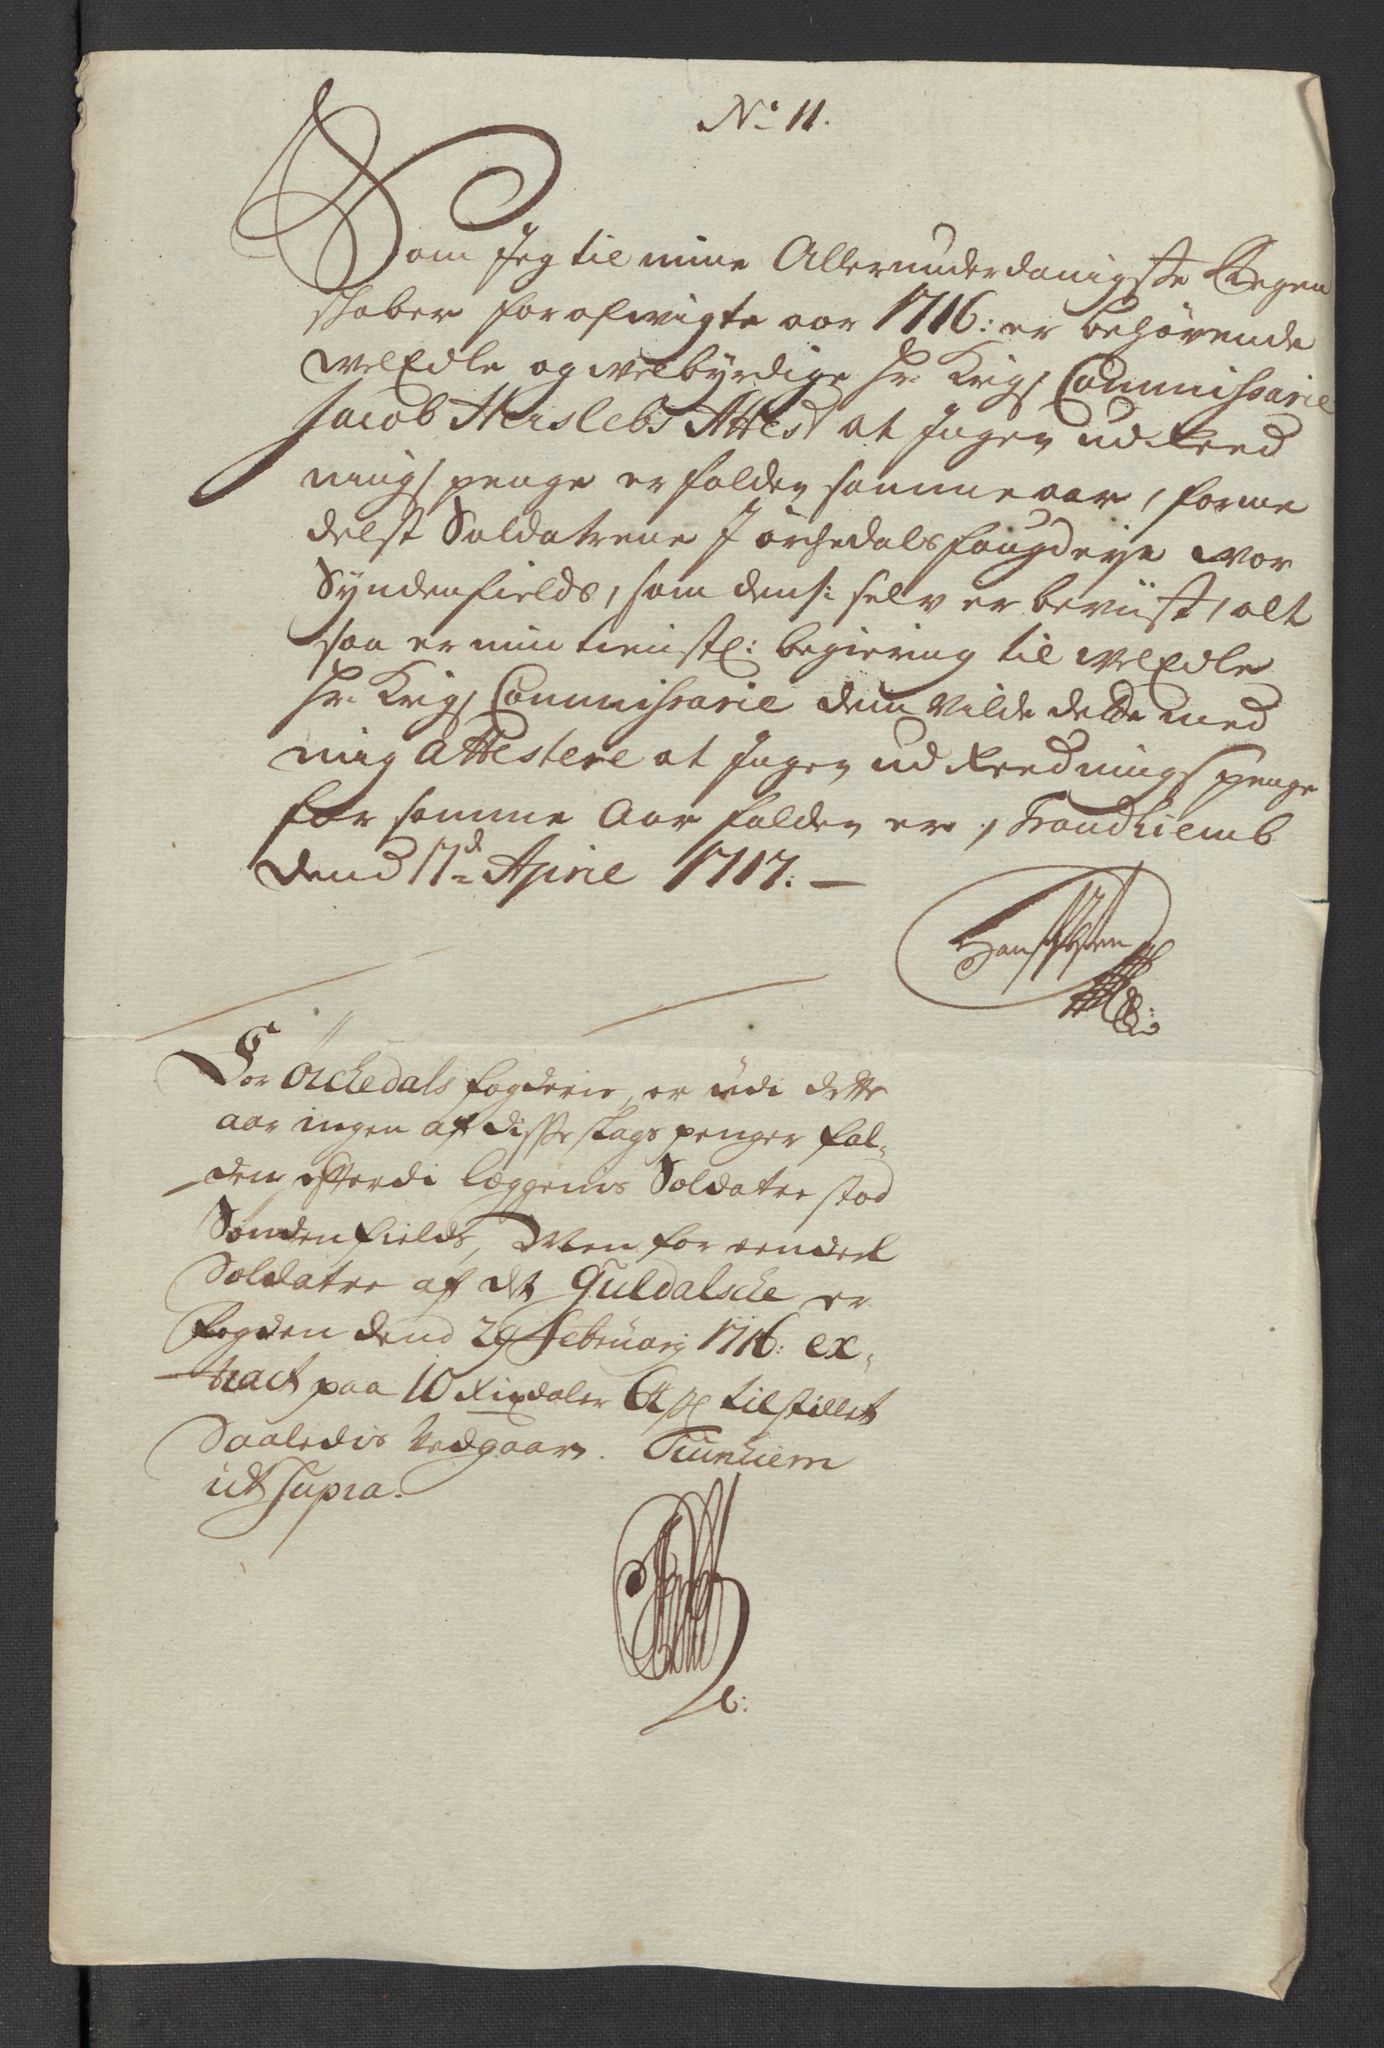 No 11.
Som Jeg til mine Allerunderdanigste Regen
skaber for afvigte aar 1716: er behøvende
WelEdle og welbyrdige Hr. Krigs Commissarie
Jacob Herslebs Attest at Ingen udReed
nings penge er falden samme aar, forme
delst Soldatene J Orchedals fougderje war
Syndenfields, som dens: selv er beviist, alt
saa er min tienstl: begiering til WelEdle
Hr. Krigs Commissarie dem Vilde dette med
mig attestere at Ingen udReednings penge
for samme Aar falden er, Trondhiemb
dend 17d April 1717. —
Hans
For Orchedals fogderie, er udi dette
aar ingen af disse slags penger fal-
den efterdi læggenis Soldatre stod
Søndenfields, Men for
Soldatre af det Guldalsche er
fogden dend 29 Februarj 1716: ex-
tract paa 10 Rixdaler 64 sl tilstillet
Saaledis Vedgaar. Trunhiem
ut supra.